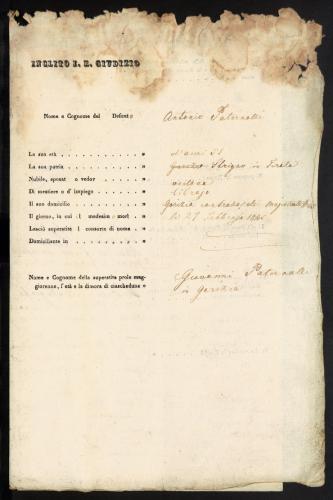 INCLITO I. R. GIUDIZIO
Nome e Cognome del Defunto " Antonio Paternolli
La sua età . . . . . . . . . . . . "
La sua patria . . . . . . . . . . . " Strigno in Tirolo
Nubile, sposato o vedovo . . . . . . . "
Di mestiere o d' impiego . . . . . . . " librajo
Il suo domicilio . . . . . . . . . . " Gorizia
Il giorno, in cui il medesimo morì . . . " li 27 Febbrajo
Lasciò superstite il consorte di nome . . "
Domiciliante in . . . . . . . . . . "
Nome e Cognome della superstite prole mag-
giorenne, l'età e la dimora di ciascheduno " Giovanni Paternolli
in Gorizia